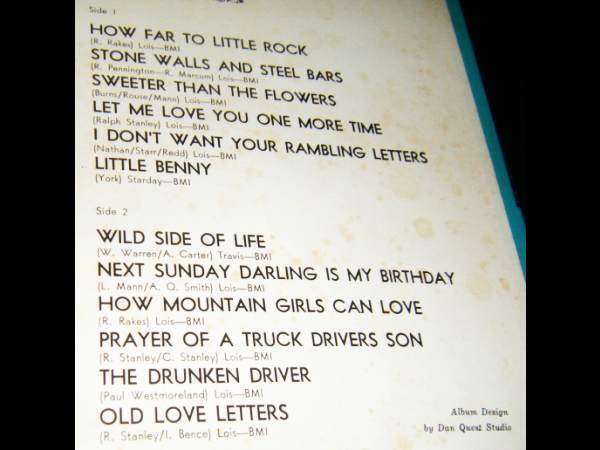 Side 1
HOW FAR TO LITTLE ROCK
(R. Rakes) Lois—BMI
STONE WALLS AND STEEL BARS
(R. Pennington—R. Marcum) Lois—BMI
SWEETER THAN THE FLOWERS
(Burns/Rouse/Mann) Lois—BMI
LET ME LOVE YOU ONE MORE TIME
(Ralph Stanley) Lois—BMI
I DON'T WANT YOUR RAMBLING LETTERS
(Nathan/Starr/Redd) Lois—BMI
LITTLE BENNY
(York) Starday—BMI
Side 2
WILD SIDE OF LIFE
(W. Warren/A. Carter) Travis—BMI
NEXT SUNDAY DARLING IS MY BIRTHDAY
(L. Mann/A. Q. Smith) Lois—BMI
HOW MOUNTAIN GIRLS CAN LOVE
(R. Rakes) Lois—BMI
PRAYER OF A TRUCK DRIVERS SON
(R. Stanley/C. Stanley) Lois—BMI
THE DRUNKEN DRIVER
(Paul Westmoreland) Lois—BMI
OLD LOVE LETTERS
(R. Stanley/I. Bence) Lois—BMI
Album Design
by Dan Quest Studio